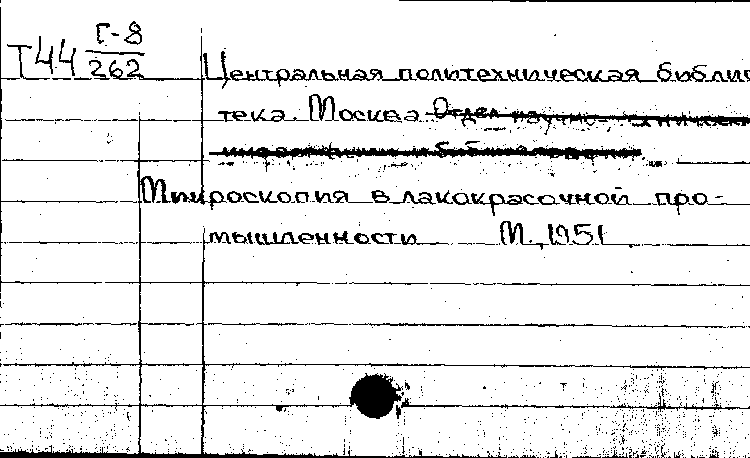 Г-8
Т44 262
Центральная политехническая библио
тека. Москва Отдел научно-технической
Микроскопия в лакокрасочной про-
мышленности М., 1951